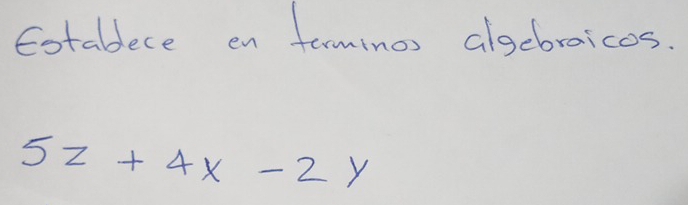 Establece en terminos algebraicos.
5z + 4x - 2y